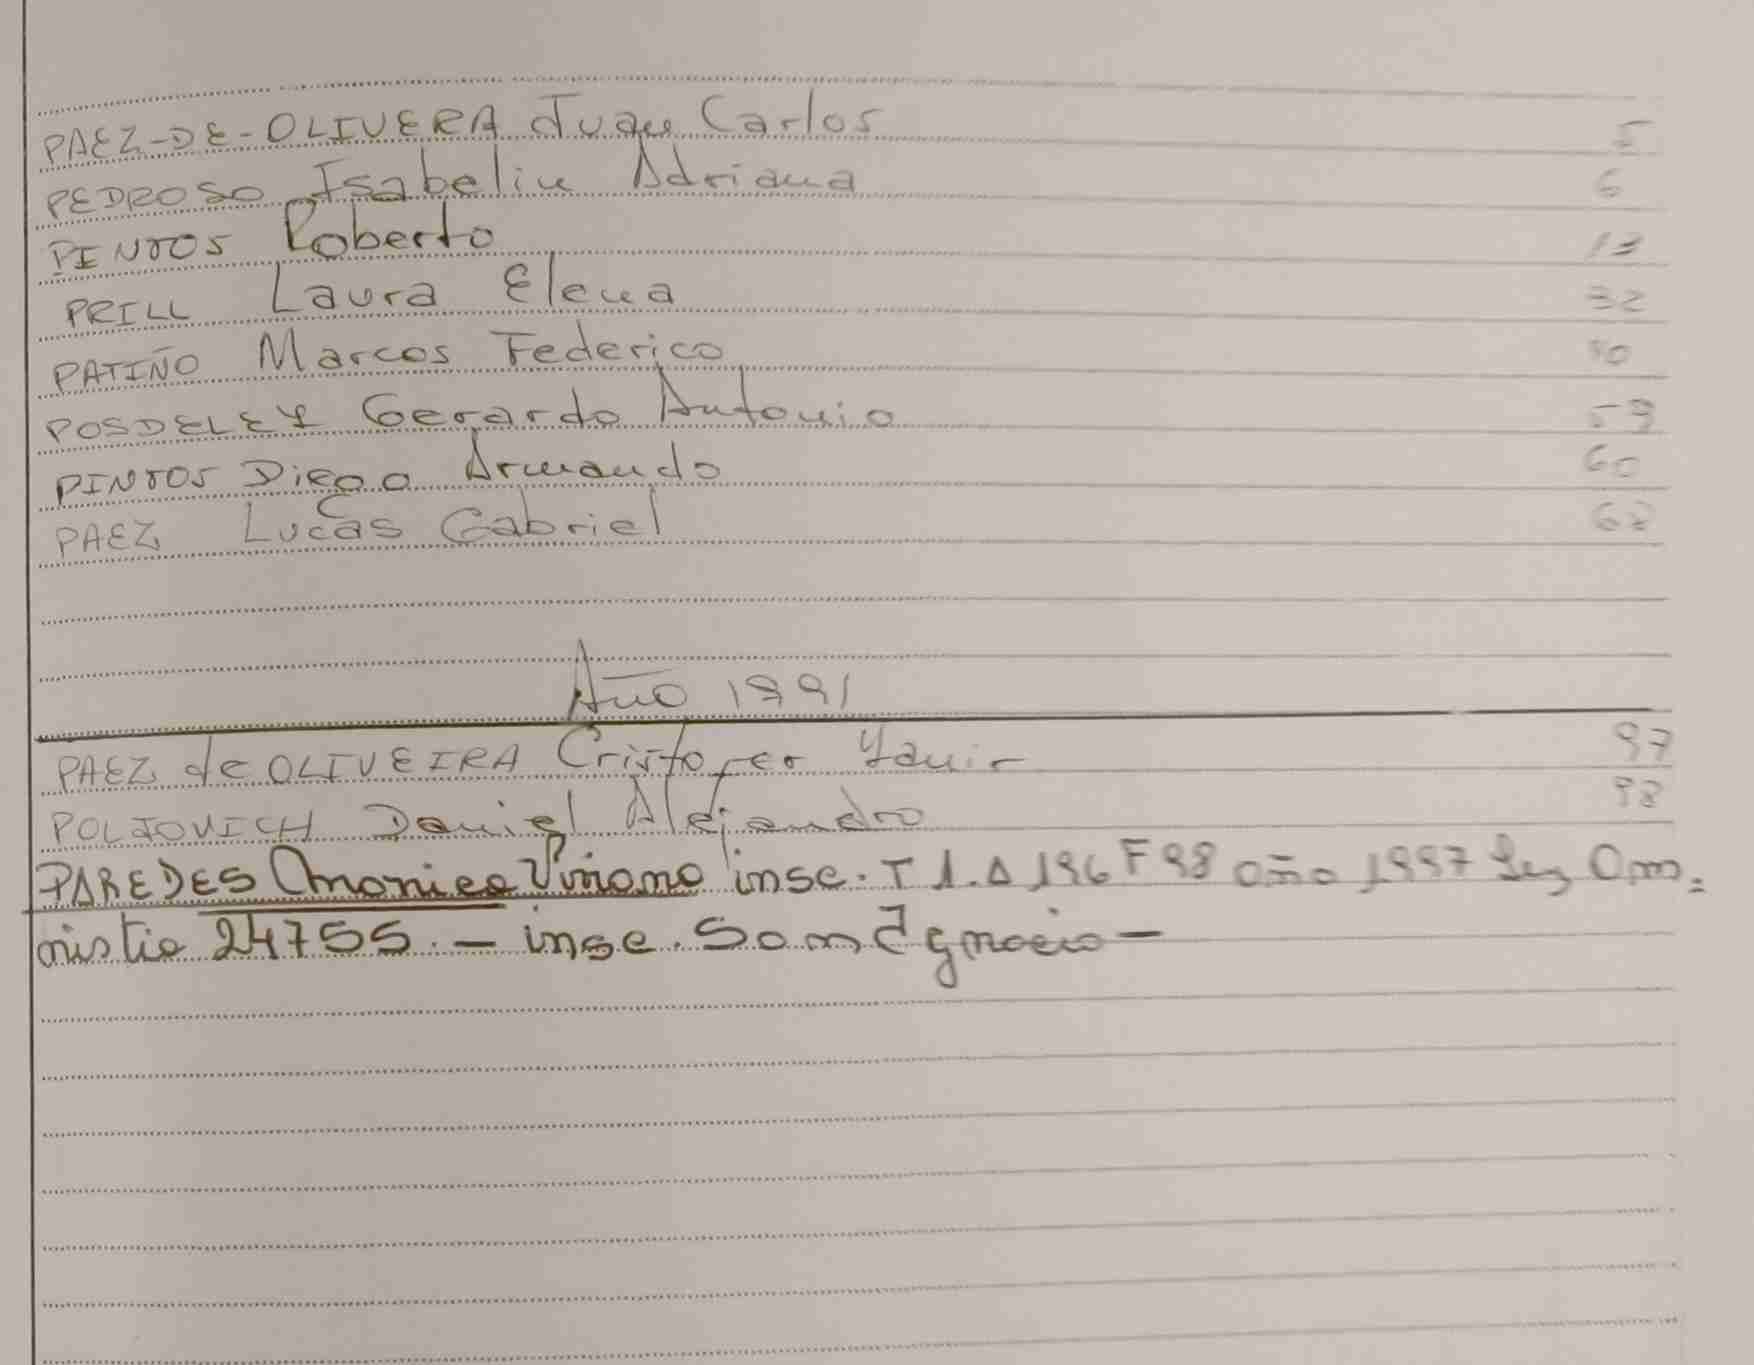 PAEZ-DE-OLIVERA Juan Carlos 5
PEDROSO Isabelin Adriana 6
PINTOS Roberto 13
PRILL Laura Elena 32
PATIÑO Marcos Federico
POSDELEY Gerardo Antonio 59
PINTOS Diego Armando 60
PAEZ Lucas Gabriel
Año 1991
PAEZ de OLIVEIRA Cristofer Yanir 97
POLJOVICH Daniel Alejandro 98
PAREDES Monica Viviana insc. T 1.A 196 F 98 año 1997 Ley Am.
nistia 24755. - insc. San Ignacio -